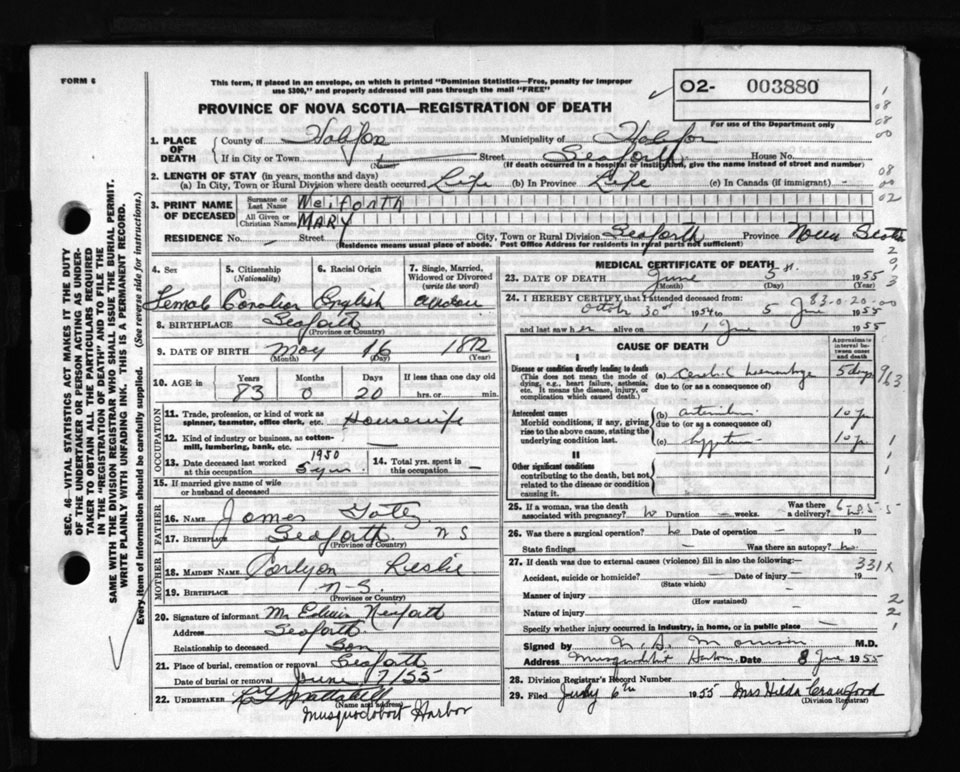 FORM 6
This form, if placed in an envelope, on which is printed "Dominion Statistics—Free, penalty for improper
use $300," and properly addressed will pass through the mail "FREE"
O2- 003880
For use of the Department only
PROVINCE OF NOVA SCOTIA—REGISTRATION OF DEATH
1. PLACE OF DEATH County of Halifax Municipality of Halifax
If in City or Town (Name) Street Seaforth House No.
(If death occurred in a hospital or institution, give the name instead of street and number)
2. LENGTH OF STAY (in years, months and days)
(a) In City, Town or Rural Division where death occurred Life (b) In Province Life (c) In Canada (if immigrant) -
3. PRINT NAME OF DECEASED Surname or Last Name Neiforth
All Given or Christian Names MARY
RESIDENCE No. - Street City, Town or Rural Division Seaforth Province Nova Scotia
(Residence means usual place of abode. Post Office Address for residents in rural parts not sufficient)
4. Sex Female
5. Citizenship (Nationality) Canadian
6. Racial Origin English
7. Single, Married, Widowed or Divorced (write the word)
8. BIRTHPLACE Seaforth (Province or Country)
9. DATE OF BIRTH May (Month) 16 (Day) 1872 (Year)
10. AGE in Years 83 Months 0 Days 20 If less than one day old hrs. or min.
OCCUPATION
11. Trade, profession, or kind of work as spinner, teamster, office clerk, etc. Housewife
12. Kind of industry or business, as cotton-mill, lumbering, bank, etc. —
13. Date deceased last worked at this occupation 1950
14. Total yrs. spent in this occupation —
15. If married give name of wife or husband of deceased
FATHER
16. NAME James
17. BIRTHPLACE Seaforth N S (Province or Country)
MOTHER
18. MAIDEN NAME Leslie
19. BIRTHPLACE N-S. (Province or Country)
20. Signature of informant Mr Edwin
Address Seaforth
Relationship to deceased Son
21. Place of burial, cremation or removal Seaforth
Date of burial or removal June 7/55
22. UNDERTAKER (Name and address)
Musquodoboit Harbor
MEDICAL CERTIFICATE OF DEATH
23. DATE OF DEATH June (Month) 5 (Day) 1955
83-0-20-00
24. I HEREBY CERTIFY that I attended deceased from:
30 1954 to 5 June 1955
and last saw her alive on 1 June 1955
CAUSE OF DEATH
Approximate interval between onset and death
I
Disease or condition directly leading to death
(This does not mean the mode of dying, e.g., heart failure, asthenia, etc. It means the disease, injury, or complication which caused death.)
(a) 5 days
due to (or as a consequence of)
Antecedent causes
Morbid conditions, if any, giving rise to the above cause, stating the underlying condition last.
(b) 10 y
due to (or as a consequence of)
(c) 10 y
II
Other significant conditions
contributing to the death, but not related to the disease or condition causing it.
25. If a woman, was the death associated with pregnancy? No Duration — weeks. Was there a delivery?
26. Was there a surgical operation? No Date of operation 19
State findings — Was there an autopsy? No.
27. If death was due to external causes (violence) fill in also the following:— 331x
Accident, suicide or homicide? — Date of injury — 19
(State which)
Manner of injury
(How sustained)
Nature of injury
Specify whether injury occurred in industry, in home, or in public place —
Signed by M.D.
Address Musquodoboit Harbor Date 8 June 1955
28. Division Registrar's Record Number
29. Filed July 6th 1955 Mrs Hilda Crawford
(Division Registrar)
SEC. 46—VITAL STATISTICS ACT MAKES IT THE DUTY
OF THE UNDERTAKER OR PERSON ACTING AS UNDER-
TAKER TO OBTAIN ALL THE PARTICULARS REQUIRED
IN THE "REGISTRATION OF DEATH" AND TO FILE THE
SAME WITH THE DIVISION REGISTRAR WHO SHALL ISSUE THE BURIAL PERMIT.
WRITE PLAINLY WITH UNFADING INK. THIS IS A PERMANENT RECORD.
Every item of information should be carefully supplied. (See reverse side for instructions.)